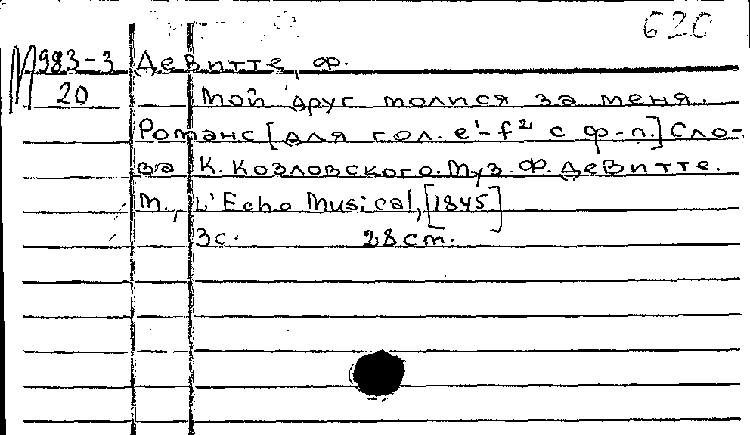 620
М 983-3 ДеВитте, Ф.
20 Мой друг молися за меня.
Романс [для гол. e¹-f² с ф-п.] Сло-
ва К. Козловского. Муз. Ф. ДеВитте.
М., L'Echo Musical, [1845]
3с. 28 см.